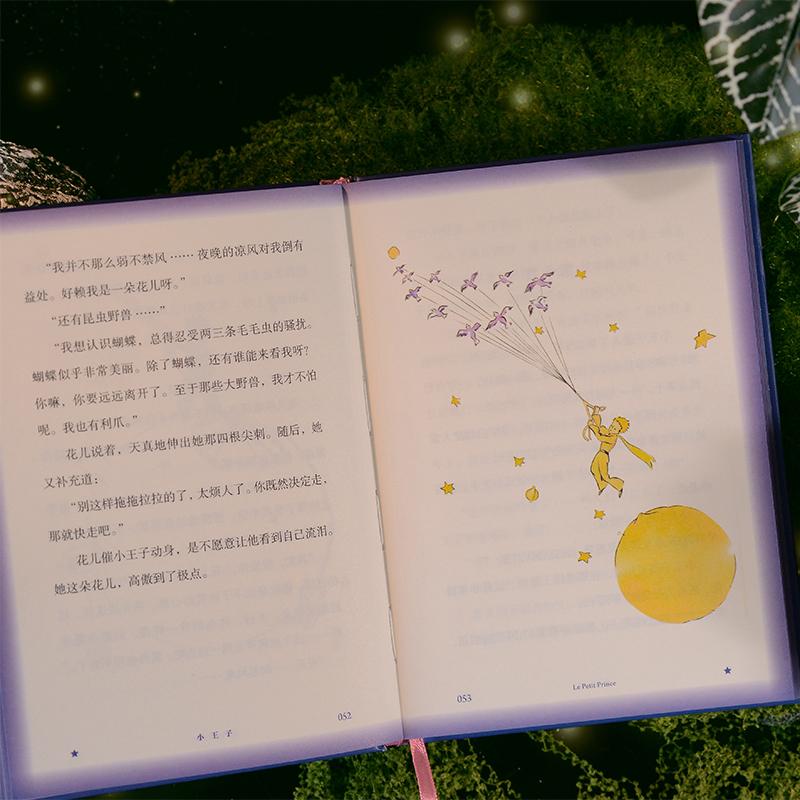 “我并不那么弱不禁风……夜晚的凉风对我倒有
益处。好赖我是一朵花儿呀。”
“还有昆虫野兽……”
“我想认识蝴蝶，总得忍受两三条毛毛虫的骚扰。
蝴蝶似乎非常美丽。除了蝴蝶，还有谁能来看我呀？
你嘛，你要远远离开了。至于那些大野兽，我才不怕
呢。我也有利爪。”
花儿说着，天真地伸出她那四根尖刺。随后，她
又补充道：
“别这样拖拖拉拉的了，太烦人了。你既然决定走，
那就快走吧。”
花儿催小王子动身，是不愿意让他看到自己流泪。
她这朵花儿，高傲到了极点。
小王子
052
053
Le Petit Prince